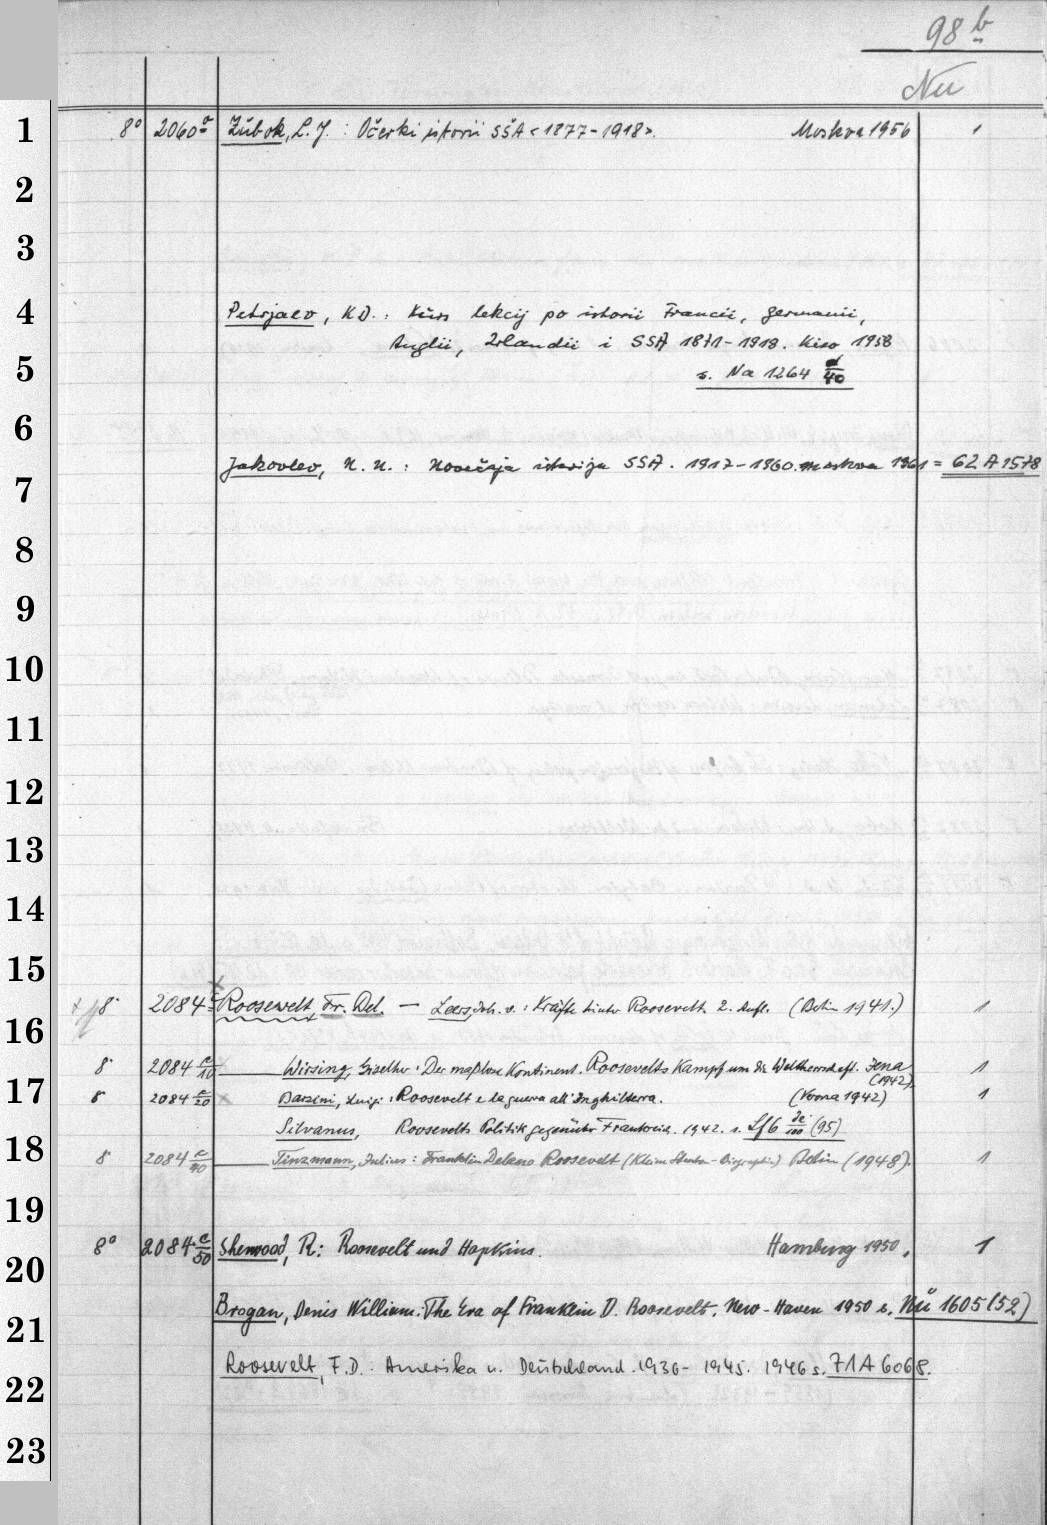 98 b
Nu
1 8° 2060 a Zubok, L. J. : Očerki istorii SŠA <1877-1918>. Moskva 1956 1
2
3
4 Petrjaev, K D. : Kurs lekcij po istorii Francii, germanii,
Anglii, Irlandii i SSA 1871-1918. Kiev 1958
5 s. Na 1264 d/40
6
Jakovlev, N. N. : Novečaja istorija SSA. 1917-1960. Moskva 1961 = 62 A 1578
7
8
9
10
11
12
13
14
15
8° 2084 c Roosevelt, Fr. Del. — Leers, Joh. v. : Kräfte hinter Roosevelt. 2. Aufl. (Berlin 1941.) 1
16
8° 2084 c/10 Wirsing, Giselher : Der maßlose Kontinent. Roosevelts Kampf um die Weltherrschaft. Jena (1942) 1
17 8° 2084 c/20 Barzini, Luigi : Roosevelt e la guerra all'Inghilterra. (Verona 1942) 1
Silvanus, Roosevelts Politik gegenüber Frankreich. 1942. s. Lf 6 de/100 (95)
18 8° 2084 c/40 Tinzmann, Julius : Franklin Delano Roosevelt (Kleine Staaten-Biographie) Berlin (1948). 1
19
8° 2084 c/50 Sherwood, R: Roosevelt und Hopkins. Hamburg 1950. 1
20
Brogan, Denis William: The Era of Franklin D. Roosevelt. New-Haven 1950 s. Nü 1605 (52)
21
Roosevelt, F. D. Amerika u. Deutschland. 1936-1945. 1946 s. 71 A 6068.
22
23